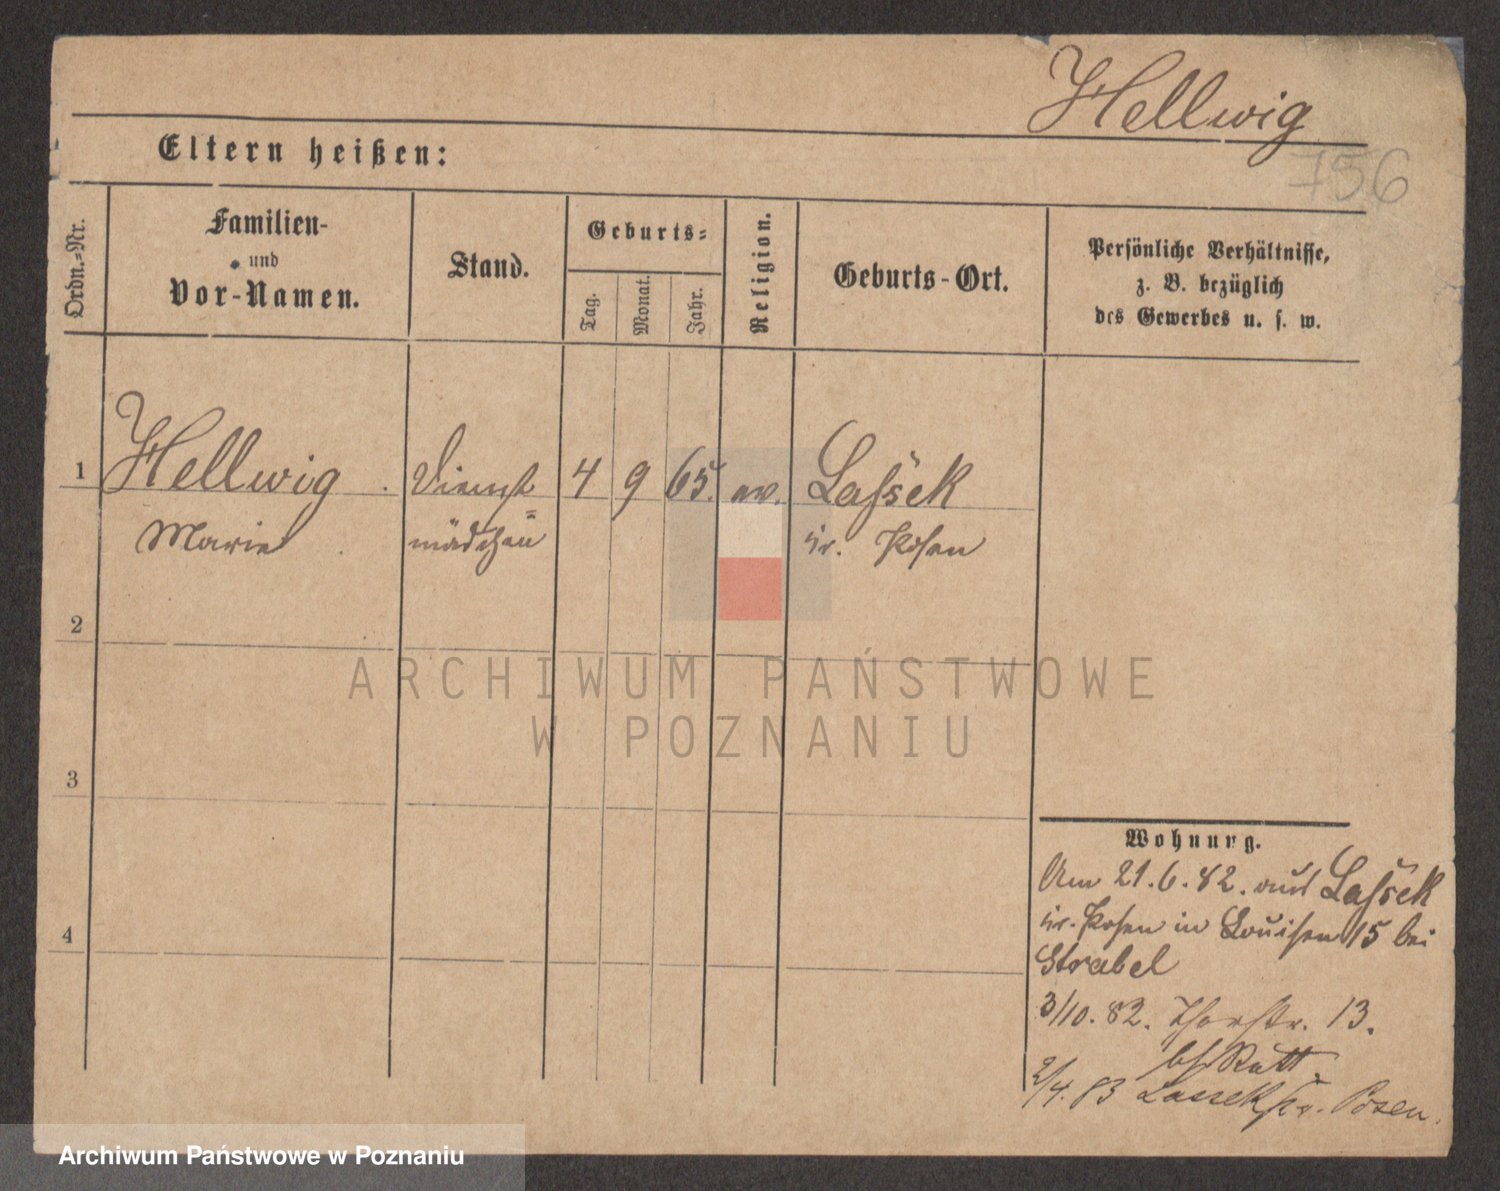 Hellwig
756
Eltern heißen:
Ordn.=Nr.
Familien-
und
Vor-Namen.
Stand.
Geburts=
Tag.
Monat.
Jahr.
Religion.
Geburts-Ort.
Persönliche Verhältnisse,
z. B. bezüglich
des Gewerbes u. s. w.
1 Hellwig Dienst 4 9 65. ev. Lassek
Marie mädchen Kr. Posen
2
3
4
ARCHIWUM PAŃSTWOWE
W POZNANIU
Wohnung.
Am 21.6.82. aus Lassek
Kr. Posen in Louisen 15 bei
Strabel
3/10.82. Thorstr. 13.
2/4.83 Lassek Kr. Posen.
Archiwum Państwowe w Poznaniu